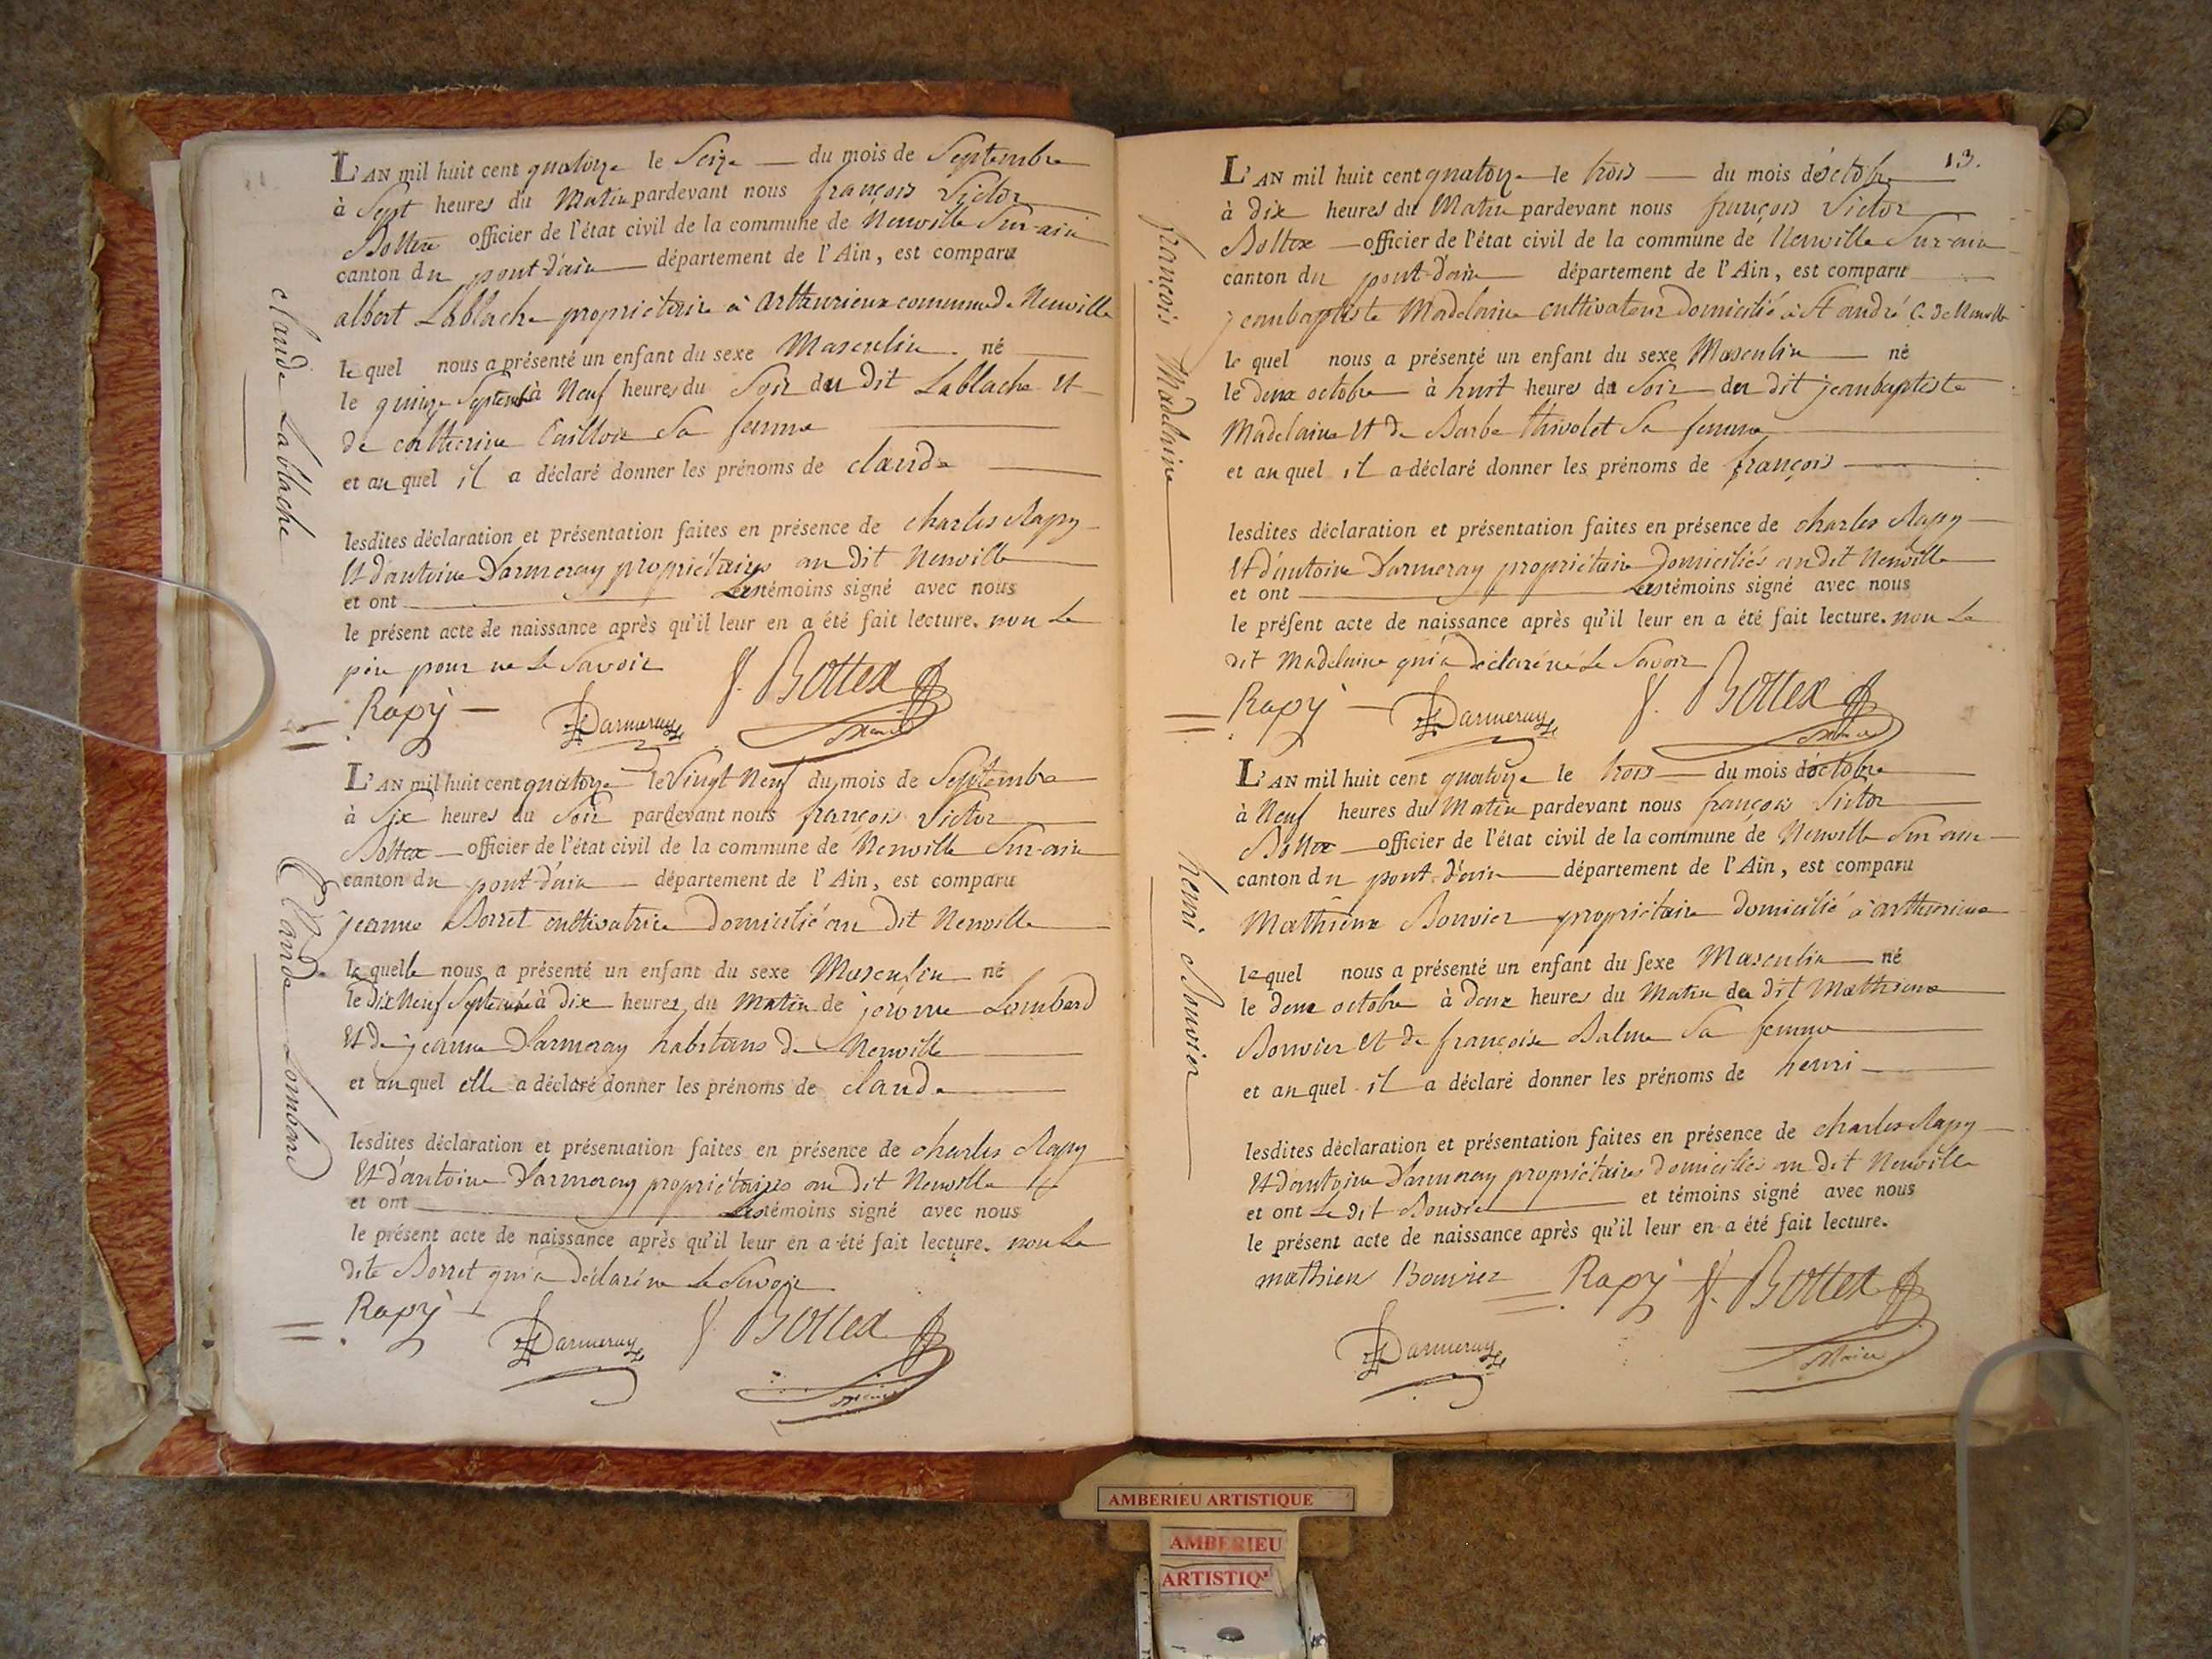 L'AN mil huit cent quatorze le Seize du mois de Septembre
à Sept heures du Matin pardevant nous françois Victor
Bottex officier de l'état civil de la commune de Neuville Sur-ain
canton du pont-d'ain département de l'Ain, est comparu
albert Lablache propriétaire à arthurieux commune de Neuville
le quel nous a présenté un enfant du sexe Masculin né
le quinze Septembre à Neuf heures du Soir du dit Lablache Et
de catherine Caillon Sa femme
et au quel il a déclaré donner les prénoms de claude
lesdites déclaration et présentation faites en présence de charles Rapy
Et d'antoine Darmeray propriétaires au dit Neuville
et ont Les témoins signé avec nous
le présent acte de naissance après qu'il leur en a été fait lecture. non Le
père pour ne Le Savoir
Rapÿ Darmeray f. Bottex
Maire
claude Lablache
L'AN mil huit cent quatorze le Vingt Neuf du mois de Septembre
à Six heures du Soir pardevant nous françois Victor
Bottex officier de l'état civil de la commune de Neuville Sur-ain
canton du pont-d'ain département de l'Ain, est comparu
jeanne Borret cultivatrice Domicilié au dit Neuville
la quelle nous a présenté un enfant du sexe Masculin né
le Dix Neuf Septembre à dix heures du Matin de jérome Lombard
Et de jeanne Darmeray habitans de Neuville
et au quel elle a déclaré donner les prénoms de claude
lesdites déclaration et présentation faites en présence de charles Rapy
Et d'antoine Darmeray propriétaires au dit Neuville
et ont Les témoins signé avec nous
le présent acte de naissance après qu'il leur en a été fait lecture. non La
dite Borret qui a Déclaré ne Le Savoir
Rapÿ Darmeray f. Bottex
Maire
Claude Lombard
13.
L'AN mil huit cent quatorze le trois du mois d'octobre
à dix heures du Matin pardevant nous françois Victor
Bottex officier de l'état civil de la commune de Neuville Sur-ain
canton du pont-d'ain département de l'Ain, est comparu
jeanbaptiste Madelaine cultivateur Domicilié à St andré C. de Neuville
le quel nous a présenté un enfant du sexe Masculin né
le deux octobre à huit heures du Soir du dit jeanbaptiste
Madelaine Et de Barbe thivolet Sa femme
et au quel il a déclaré donner les prénoms de françois
lesdites déclaration et présentation faites en présence de charles Rapy
Et d'antoine Darmeray propriétaire Domiciliés au dit Neuville
et ont Les témoins signé avec nous
le présent acte de naissance après qu'il leur en a été fait lecture. non Le
dit Madelaine qui a Déclaré ne Le Savoir
Rapÿ Darmeray f. Bottex
Maire
françois Madelaine
L'AN mil huit cent quatorze le trois du mois d'octobre
à Neuf heures du Matin pardevant nous françois Victor
Bottex officier de l'état civil de la commune de Neuville Sur-ain
canton du pont-d'ain département de l'Ain, est comparu
Mathieux Bouvier propriétaire Domicilié à arthurieux
le quel nous a présenté un enfant du sexe Masculin né
le deux octobre à Deux heures du Matin du dit Mathieux
Bouvier Et de françoise Balme Sa femme
et au quel il a déclaré donner les prénoms de henri
lesdites déclaration et présentation faites en présence de charles Rapy
Et d'antoine Darmeray propriétaires domiciliés au dit Neuville
et ont Le dit Bouvier et témoins signé avec nous
le présent acte de naissance après qu'il leur en a été fait lecture.
mathieu Bouvier Rapÿ f. Bottex
Darmeray Maire
henri Bouvier
AMBERIEU ARTISTIQUE
AMBERIEU
ARTISTIQ